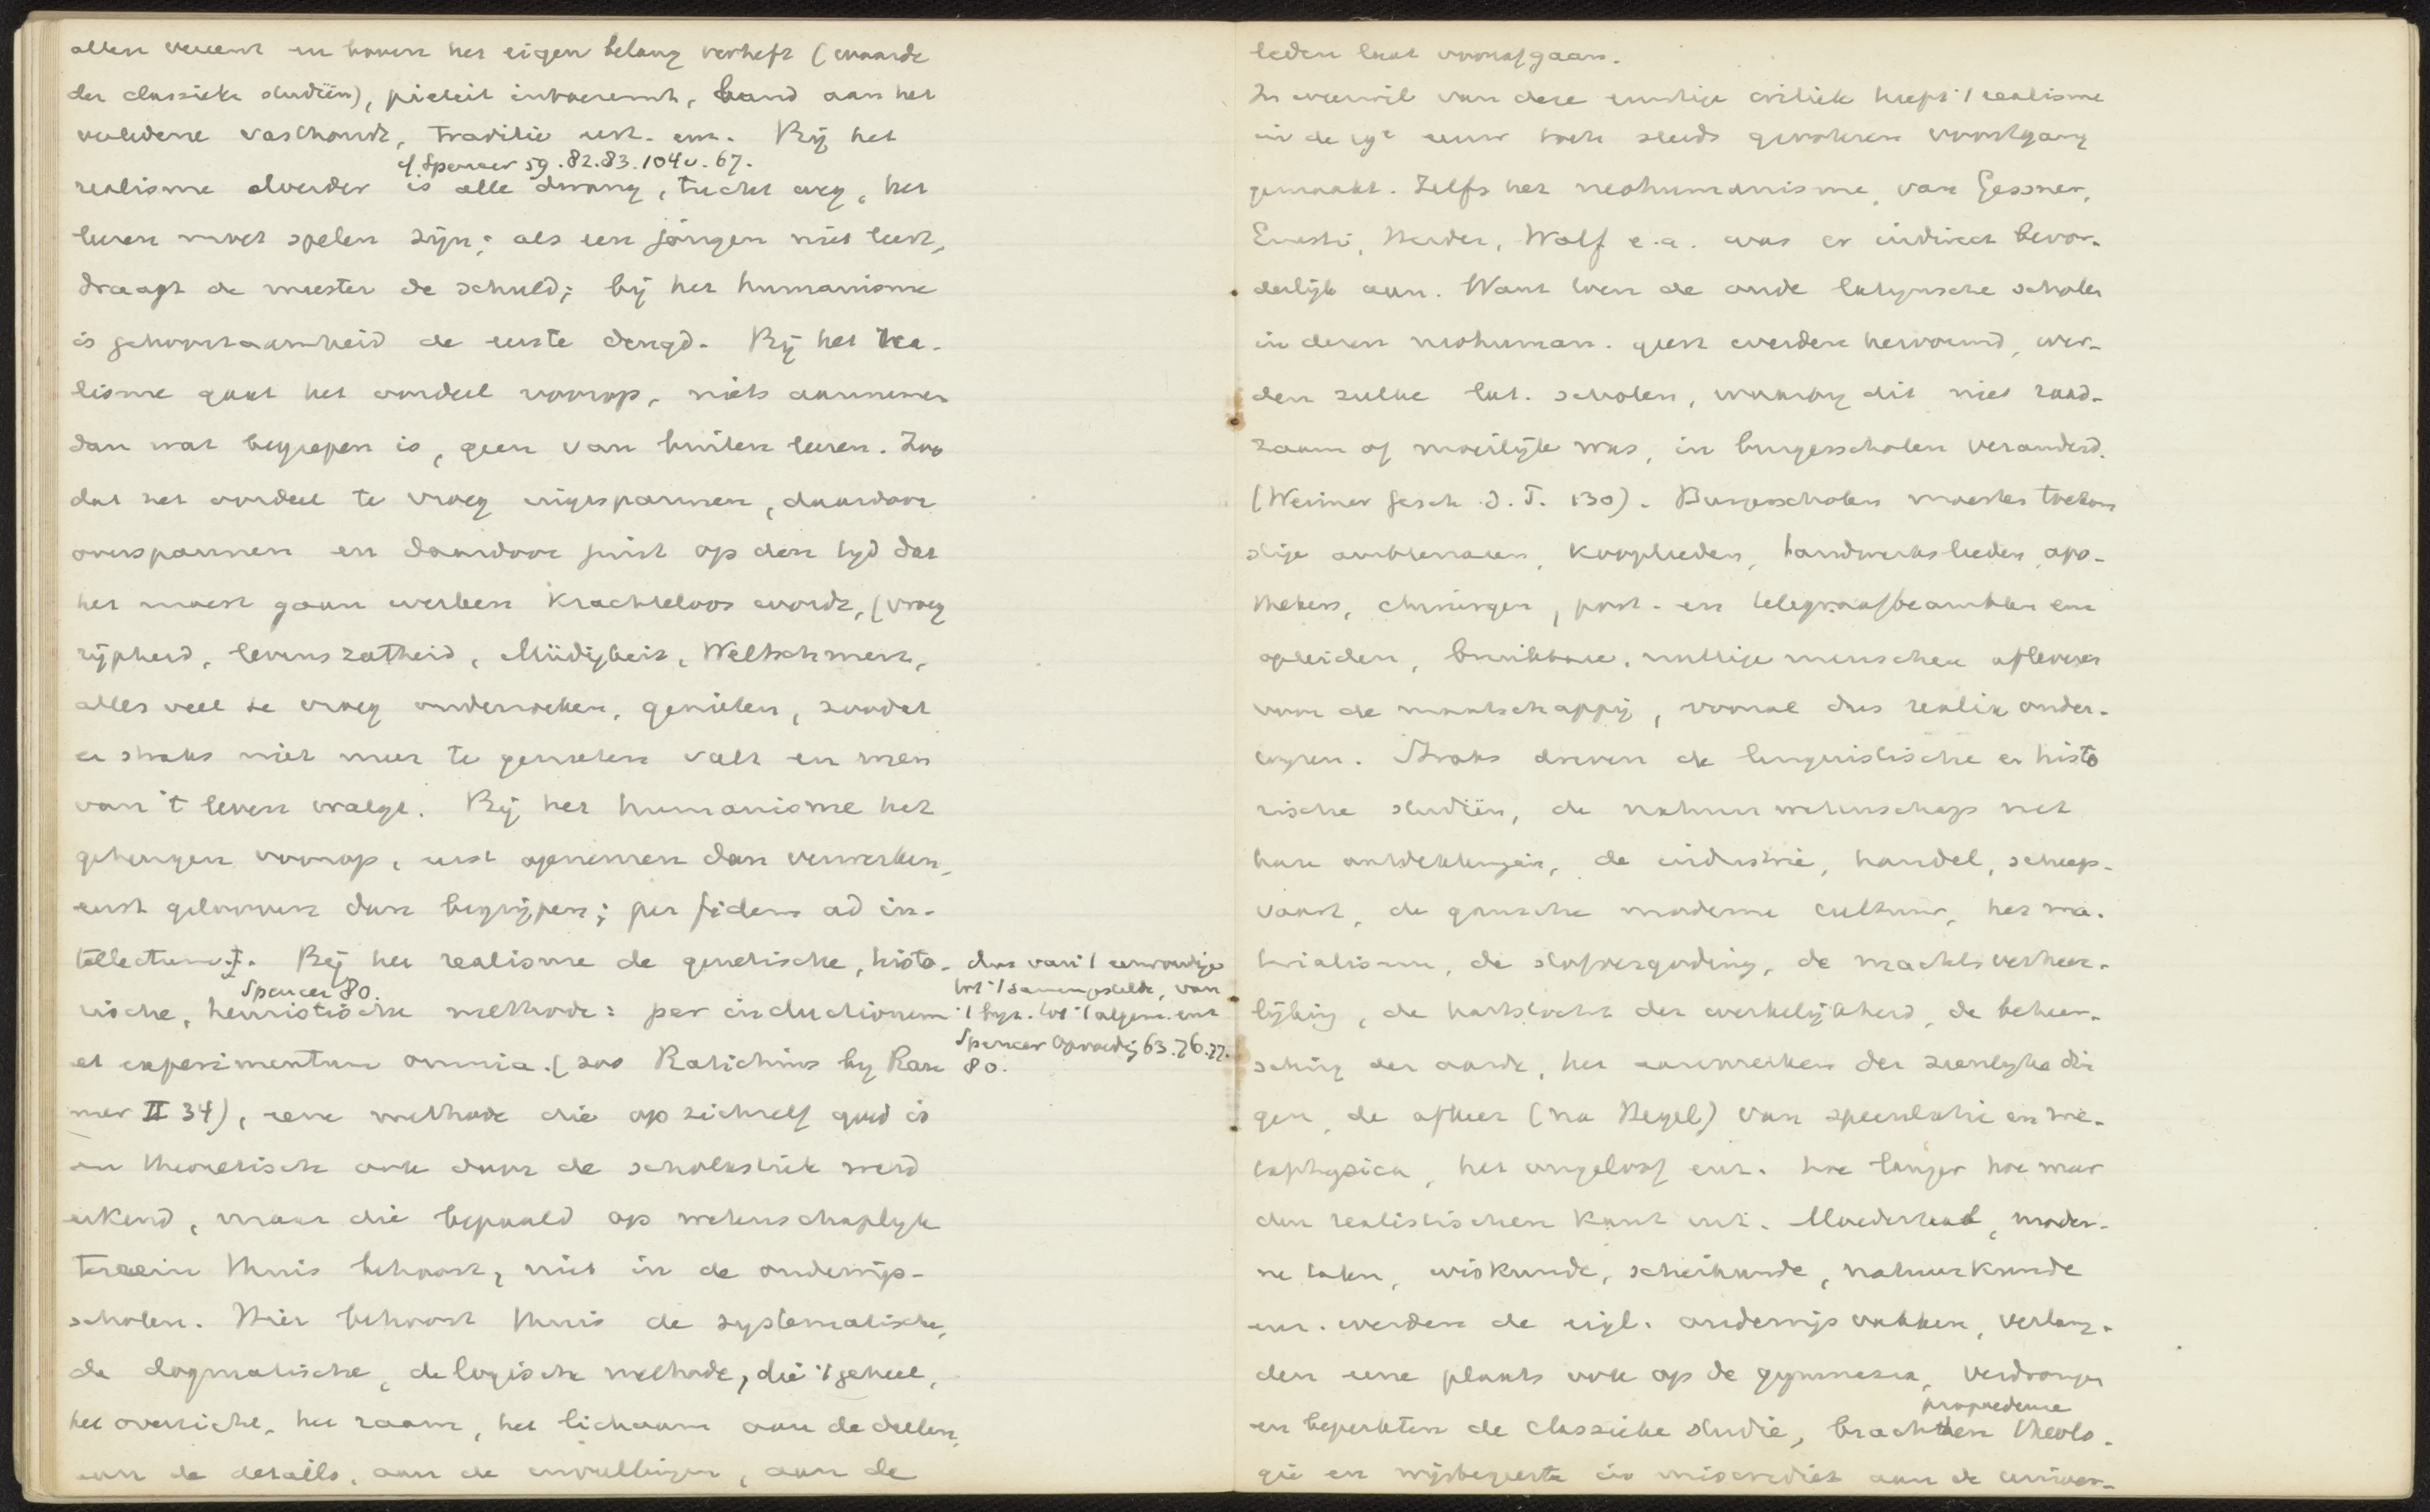 allen vereent en boven het eigen belang verheft (waarde
der classieke studiën), pieteit inboezemt, band aan het
verledene vasthoudt, traditie enz. enz. Bij het
cf Spencer 59. 82. 83. 104v. 67.
realisme alverder is alle dwang, tucht weg, het
leeren moet spelen zijn; als een jongen niet leert,
draagt de meester de schuld; bij het humanisme
is gehoorzaamheid de eerste deugd. Bij het rea-
lisme gaat het oordeel voorop, niets aannemen
dan wat begrepen is, geen van buiten leeren. Zoo
dat het oordeel te vroeg ingespannen, daardoor
overspannen en daardoor juist op den tyd dat
het moest gaan werken krachteloos wordt, (vroeg
rijpheid, levenszatheid, Müdigkeit, Weltschmerz,
alles veel te vroeg onderzoeken, genieten, zoodat
er straks niet meer te genieten valt en men
van 't leven walgt. Bij het humanisme het
geheugen voorop, eerst opnemen dan verwerken,
eerst gelooven dan begrijpen; per fidem ad in-
tellectum. Bij het realisme de genetische, histo-
Spencer 80.
rische, heuristische methode: per inductionem
et experimentum omnia. (zoo Ratichius by Rau
mer II 34), eene methode die op zichzelf goed is
en theoretisch ook door de scholastiek werd
erkend, maar die bepaald op wetenschaplyk
terrein thuis behoort, niet in de onderwijs-
scholen. Hier behoort thuis de systematische,
de dogmatische, de logische methode, die 't geheel,
het overzicht, het raam, het lichaam aan de deelen,
aan de details, aan de invullingen, aan de
dus van 't eenvoudige
tot 't samengestelde, van
't byz. tot 't algem. enz
Spencer Opvoedg 63. 76. 77.
80.
leden laat voorafgaan.
In weerwil van deze ernstige critiek heeft 't realisme
in de 19e eeuw toch steeds grooteren voortgang
gemaakt. Zelfs het neohumanisme van Gessner,
Ernesti, Herder, Wolf e.a. was er indirect bevor-
derlijk aan. Want toen de oude latynsche scholen
in dezen neohuman. geest werden hervormd, wer-
den zulke lat. scholen, waarby dit niet raad-
zaam of moeilyk was, in burgerscholen veranderd.
(Weimer Gesch d. P. 130). Burgerscholen moesten toekom
stige ambtenaren, kooplieden, handwerkslieden, apo-
thekers, chirurgen, post- en telegraafbeambten enz
opleiden, bruikbare, nuttige menschen afleveren
voor de maatschappij, vooral dus realia onder-
wyzen. Straks dreven de linguistische en histo
rische studiën, de natuurwetenschap met
hare ontdekkingen, de industrie, handel, scheep-
vaart, de gansche moderne cultuur, het ma-
terialisme, de stofvergoding, de machtsverheer-
lijking, de hartstocht der werkelijkheid, de beheer-
sching der aarde, het aanmerken der zienlyke din
gen, de afkeer (na Hegel) van speculatie en me-
taphysica, het ongeloof enz. hoe langer hoe meer
den realistischen kant uit. Moedertaal, moder-
ne talen, wiskunde, scheikunde, natuurkunde
enz. werden de eigl. onderwijsvakken, verlang-
den eene plaats ook op de gymnasia, verdrongen
propaedeuse
en beperkten de classieke studie, brachten theolo-
gie en wijsbegeerte in miscrediet aan de univer-